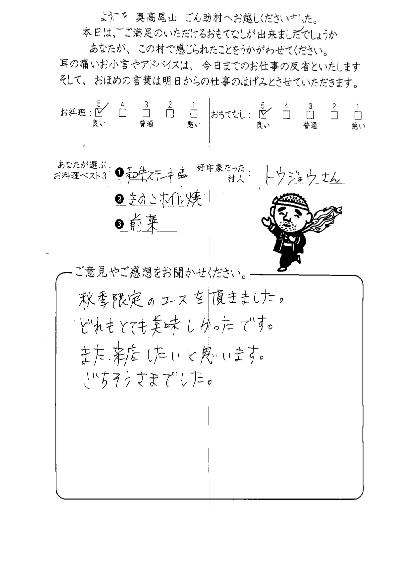 ようこそ 奥高尾山 ごん助村へお越しくださいました。
本日は、ご満足のいただけるおもてなしが出来ましたでしょうか
あなたが、この村で感じられたことをうかがわせてください。
耳の痛いお小言やアドバイスは、今日までのお仕事の反省といたします
そして、おほめの言葉は明日からの仕事のはげみとさせていただきます。
お料理: 5 4 3 2 1 おもてなし: 5 4 3 2 1
良い 普通 悪い 良い 普通 悪い
あなたが選ぶ、お料理ベスト3
❶ 和牛ステーキ重
❷ きのこホイル焼
❸ 前菜
好印象だった村人 トウジョウさん
ご意見やご感想をお聞かせください。
秋季限定のコースを頂きました。
どれもとても美味しかったです。
また来店したいと思います。
ごちそうさまでした。